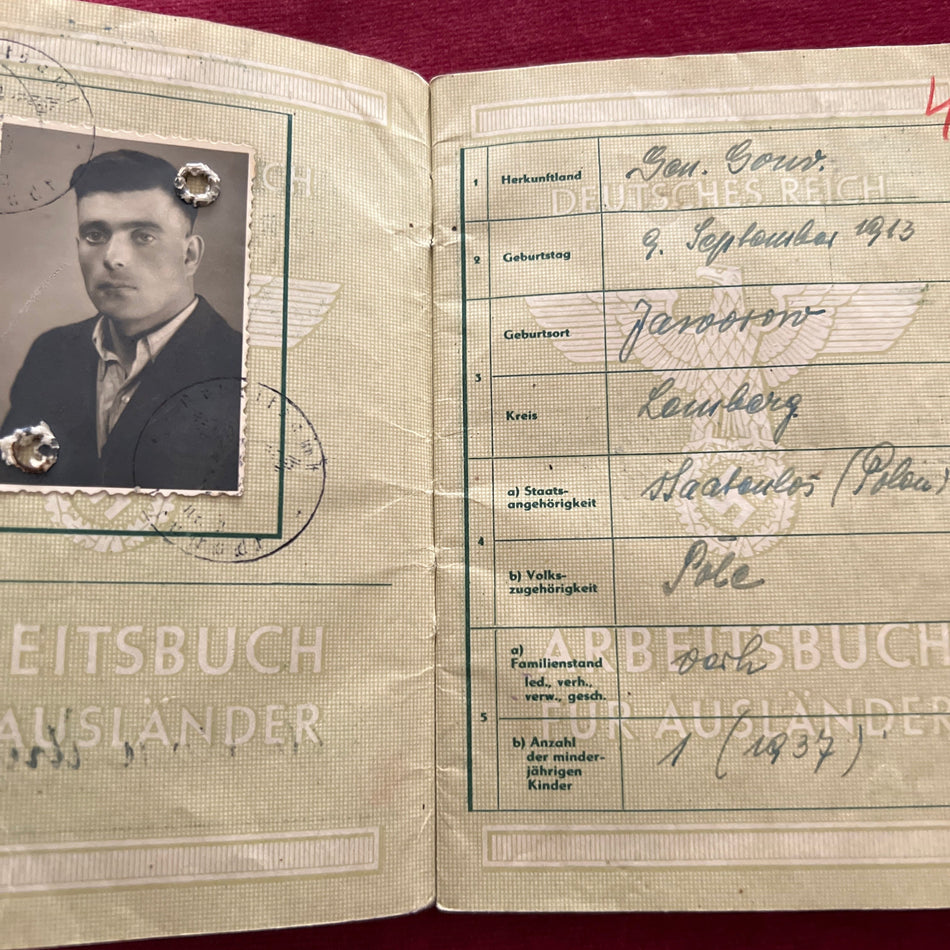 EITSBUCH
AUSLÄNDER
4
DEUTSCHES REICH
1 Herkunftland Gen. Gouv.
2 Geburtstag 9. September 1913
3 Geburtsort Jaworow
Kreis Lemberg
4 a) Staats-
angehörigkeit staatenlos (Polen)
b) Volks-
zugehörigkeit Pole
ARBEITSBUCH
FÜR AUSLÄNDER
5 a)
Familienstand verh
led., verh.,
verw., gesch.
b) Anzahl
der minder-
jährigen
Kinder 1 (1937)